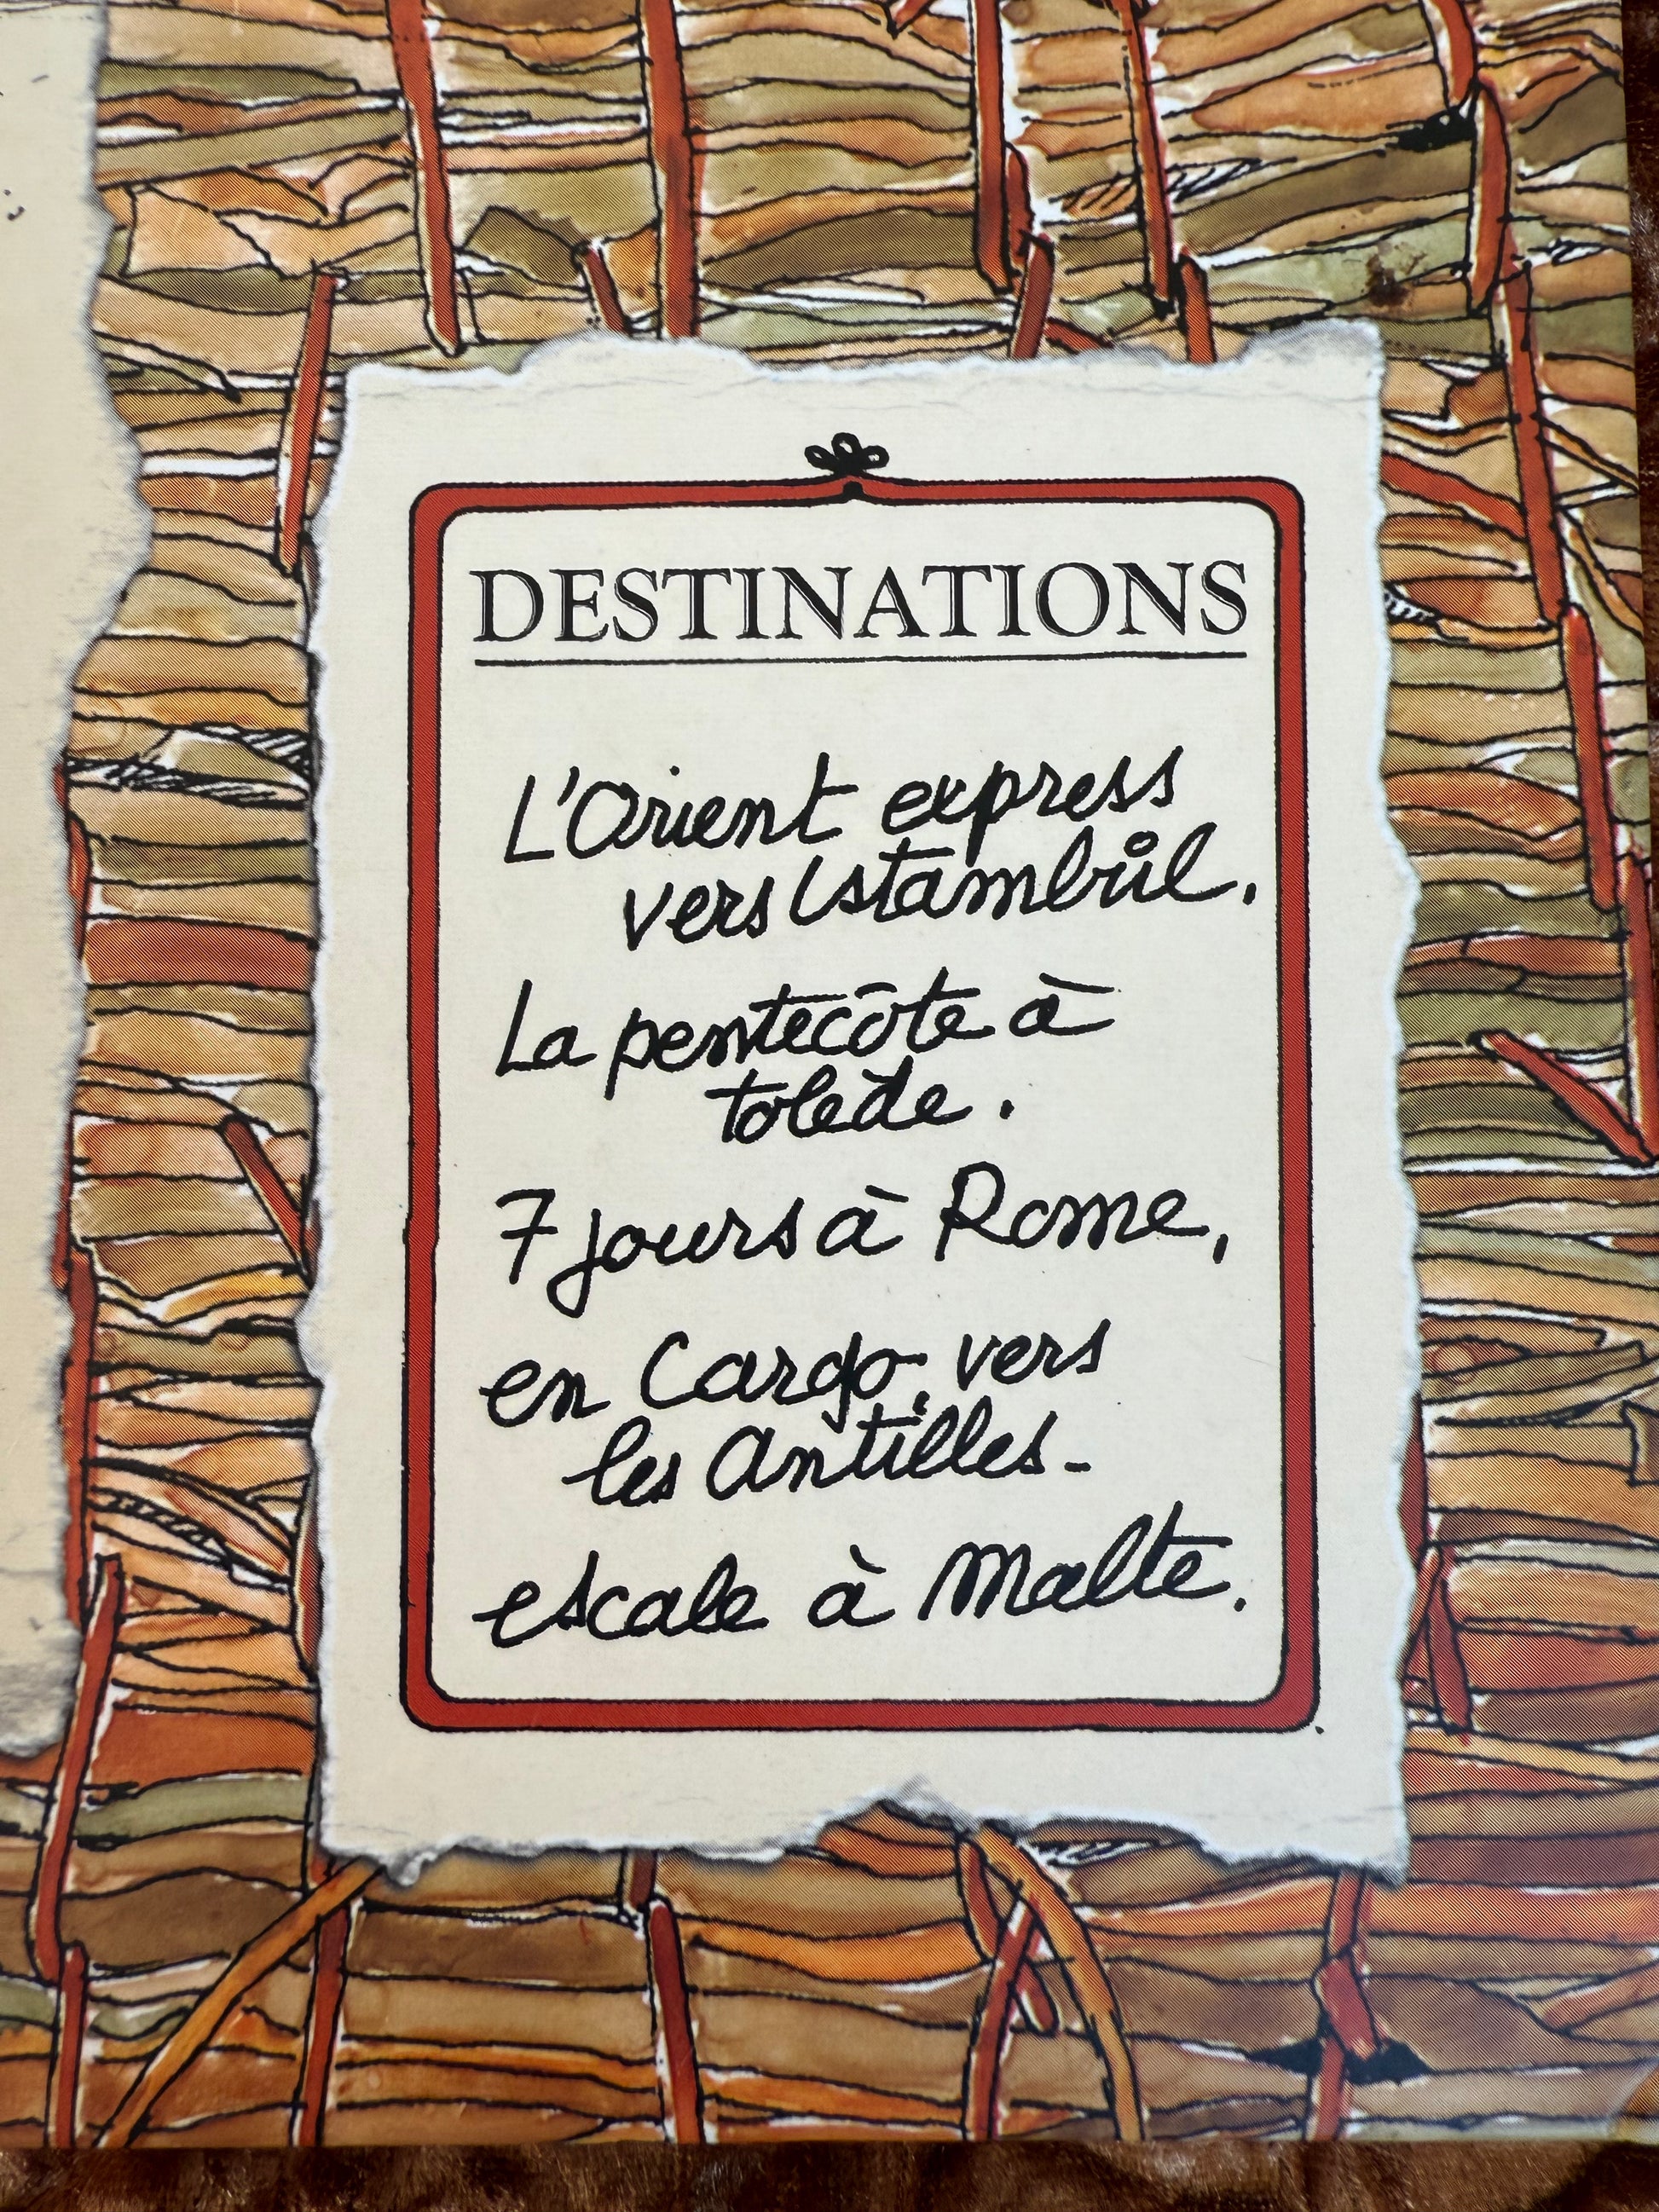 DESTINATIONS
L'Orient express
vers Istambůl.
La pentecôte à
tolède.
7 jours à Rome,
en Cargo, vers
les Antilles-
escale à Malte.